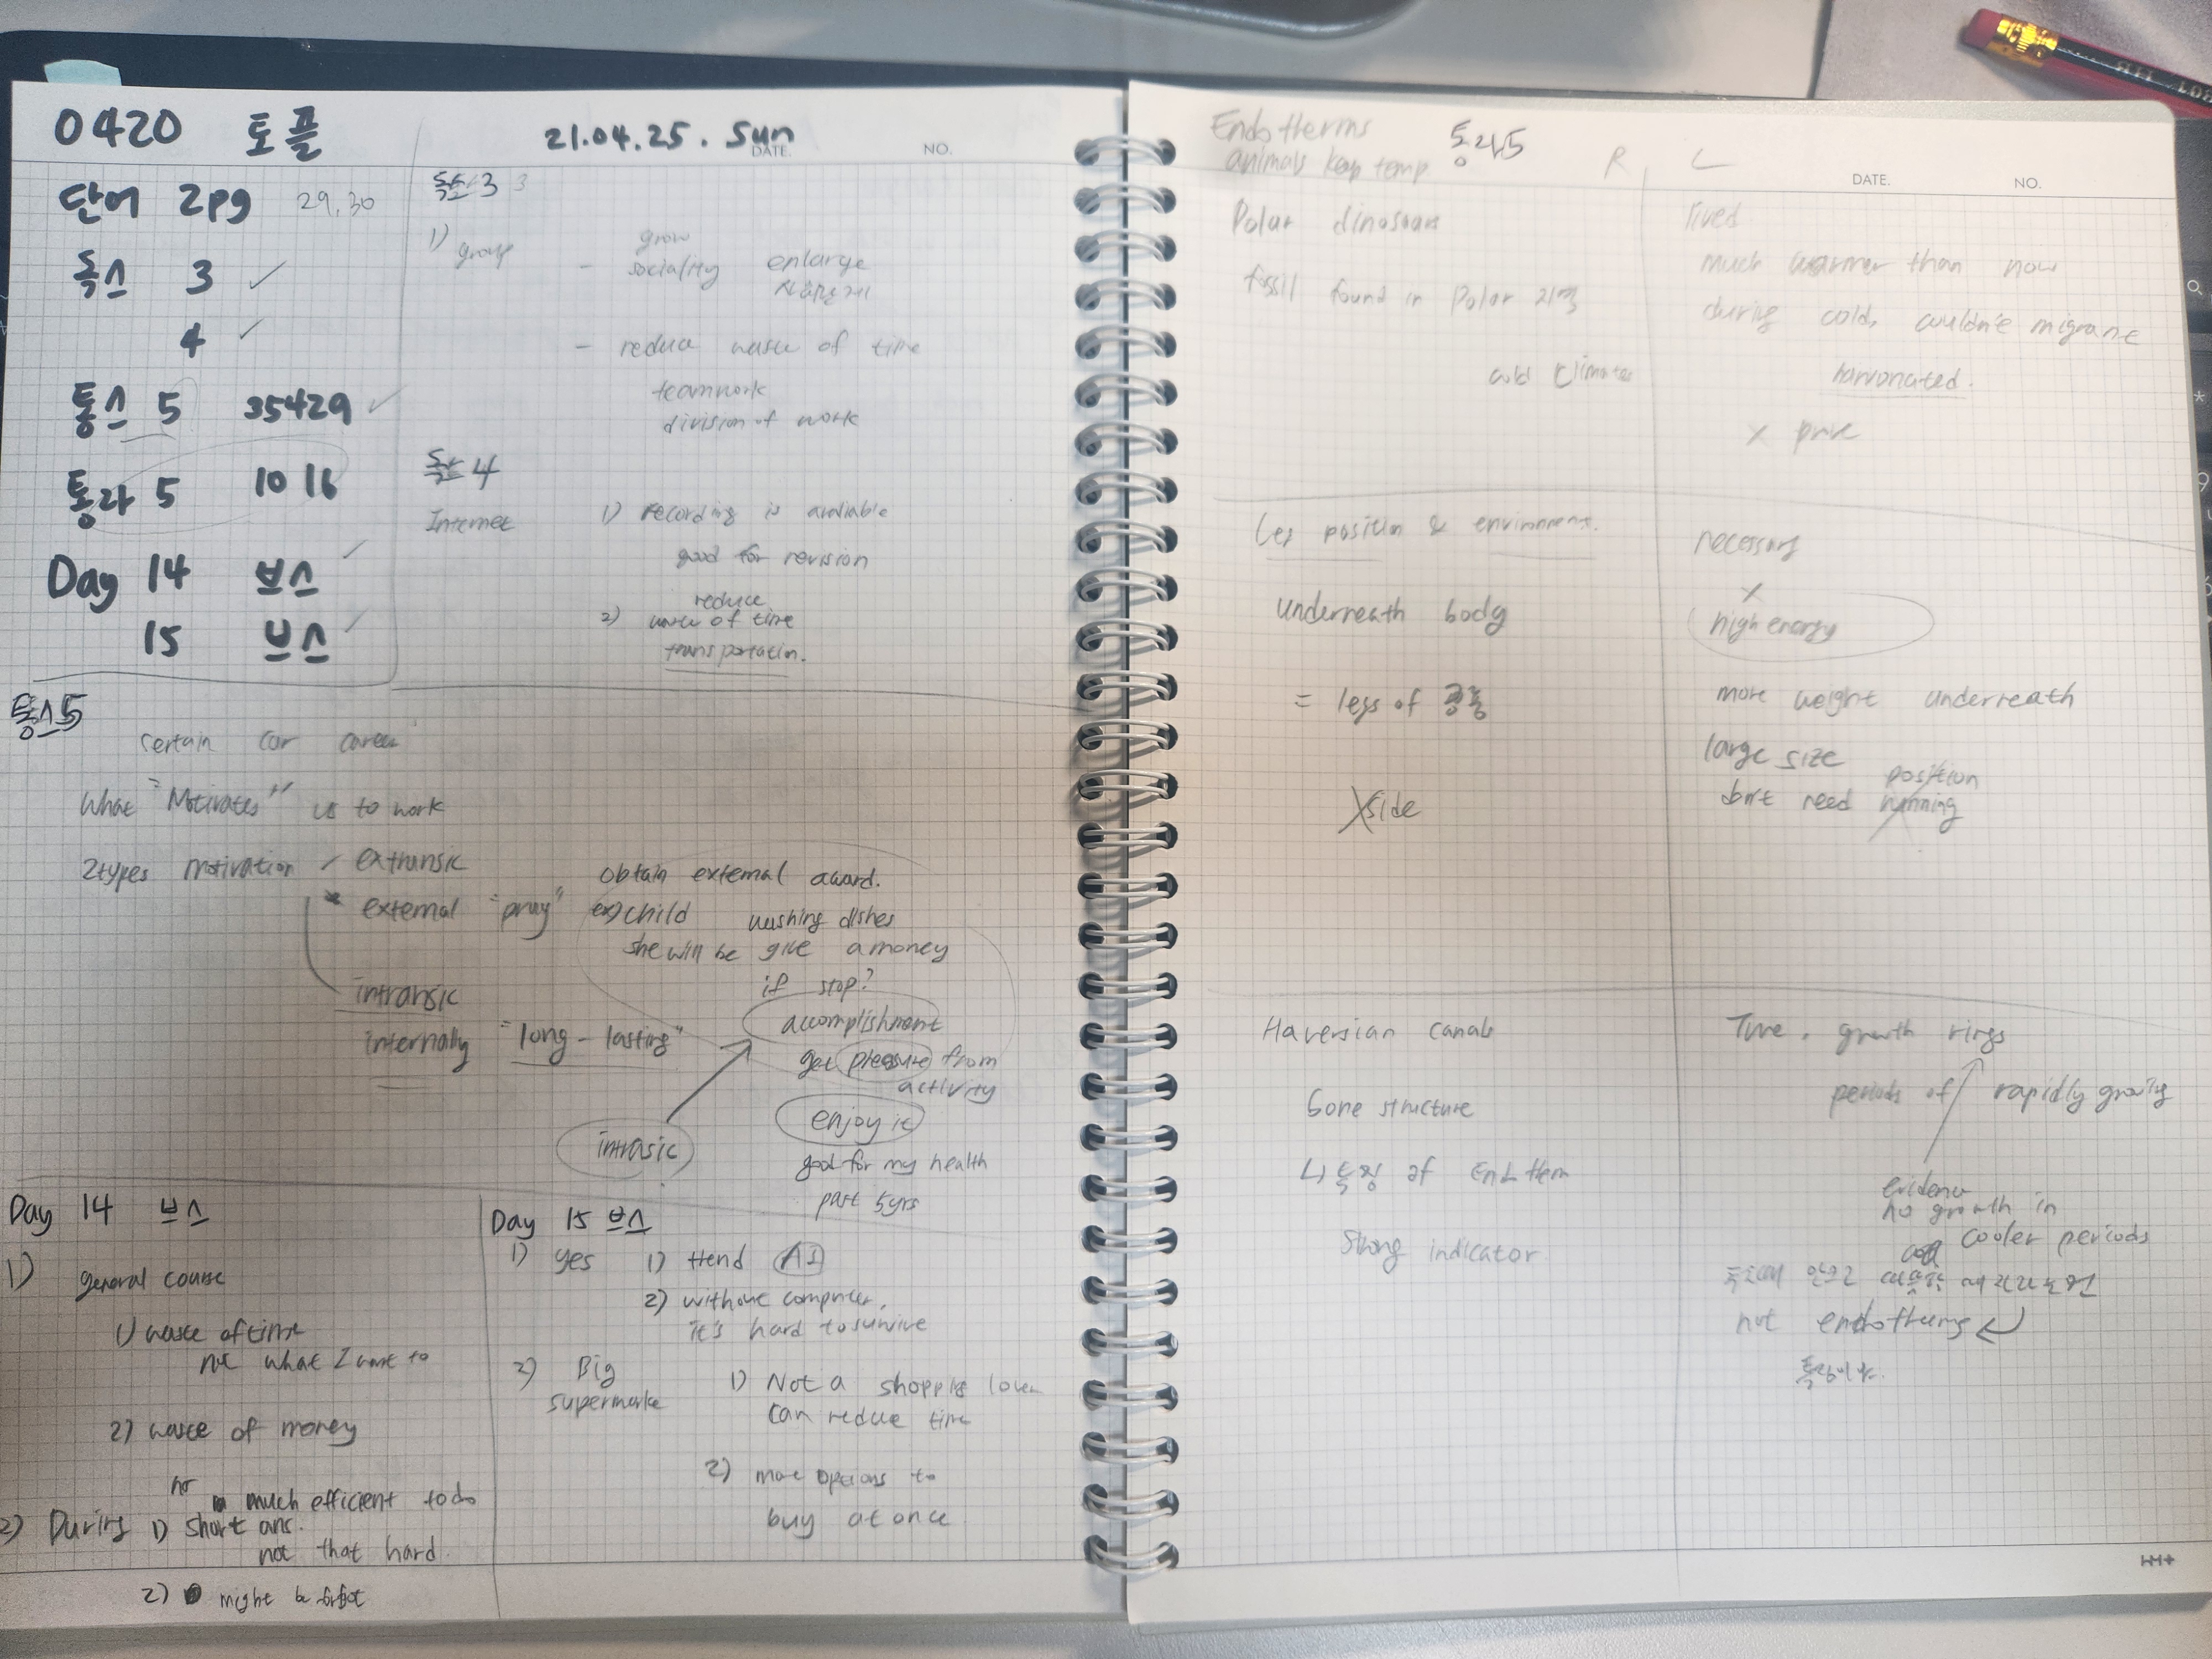 0420 토플
21.04.25. Sun
DATE.
NO.
단어 2pg 29,30
독스 3
4
통스 5 35429
통라 5 10 16
Day 14 브스
15 브스
독스 3 3
1) group
grow
- sociality enlarge
- reduce waste of time
teamwork
division of work
독스 4
Internet
1) recording is available
good for revision
reduce
2) waste of time
transportation.
통스 5
certain career
What "Motivates" us to work
2types motivation extrinsic
external
obtain external award.
ex) child washing dishes
she will be give a money
if stop?
intransic
internally "long-lasting"
accomplishment
get pleasure from
activity
enjoy it
good for my health
past 5yrs
intrasic
Day 14 브스
1) general course
1) waste of time
not what I want to
2) waste of money
much efficient to do
2) During 1) short ans.
not that hard.
2) might be
Day 15 브스
1) yes 1) trend AI
2) without computer,
it's hard to survive
2) Big
supermarke
1) Not a shopping lover
can reduce time
2) more options to
buy at once
Endotherms
animals keep temp.
통라5
R, L
DATE.
NO.
Polar dinosaurs
fossil found in Polar 지역
cold climates
lived
much warmer than now
during cold, couldn't migrate
Leg position & environment.
underneath body
= legs of 공룡
X side
necessary
X
high energy
more weight underneath
large size
position
don't need running
Haversian canals
bone structure
ㄴ 특징 of Endotherm
Strong indicator
True. growth rings
periods of rapidly growing
evidence
no growth in
cooler periods
not endotherms